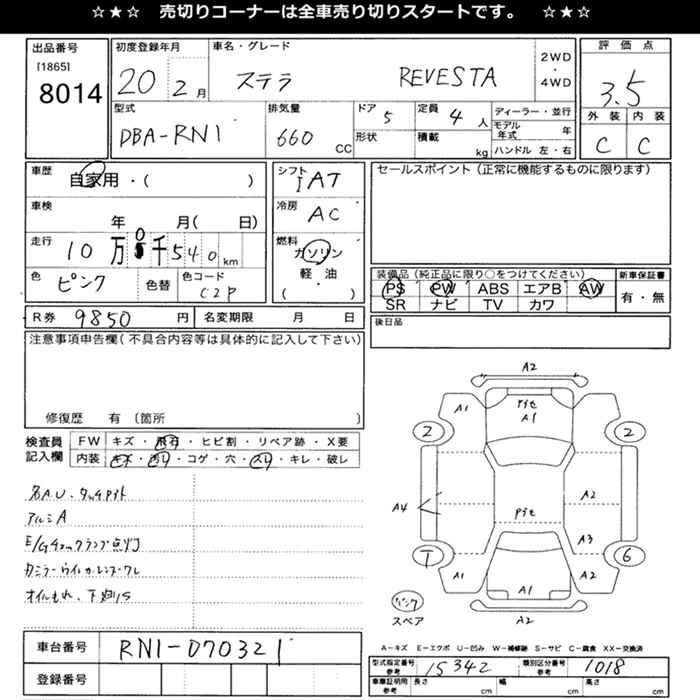 ☆★☆ 売切りコーナーは全車売り切りスタートです。 ☆★☆
出品番号 初度登録年月 車名・グレード 2WD ・ 4WD 評価点
[1865]
8014 20 2月 ステラ REVESTA 3.5
型式 排気量 ドア 5 定員 4人 ディーラー・並行 外装 内装
DBA-RN1 660 CC 形状 積載 kg モデル年式 年 C C
ハンドル 左・右
車歴 自家用・( ) シフト IAT セールスポイント(正常に機能するものに限ります)
車検 年 月( 日) 冷房 AC
走行 10万0千540km 燃料 ガソリン
色 ピンク 色替 色コード C2P 軽・油 ( ・ )
装備品(純正品に限り○をつけてください) 新車保証書
PS PW ABS エアB AW 有・無
SR ナビ TV カワ
R券 9850円 名変期限 月 日 後日品
注意事項申告欄(不具合内容等は具体的に記入して下さい)
修復歴 有 (箇所 )
検査員記入欄 FW キズ・飛石・ヒビ割・リペア跡・X要
内装 キズ・汚レ・コゲ・穴・スレ・キレ・破レ
A2
A1 アセ A1
2 2
A4 アセ A2
A3
1 6
A1 A1 A2
A2
パンク
スペア
各A.U、タッチペイント
アルミA
E/Gチェックランプ点灯
オイルもれ、下廻りS
車台番号 RN1-070321
登録番号
A-キズ E-エクボ U-凹み W-補修跡 S-サビ C-腐食 XX-交換済
型式指定番号 参考 15342 類別区分番号 参考 1018
車庫証明用 参考 長さ cm 幅 cm 高さ cm